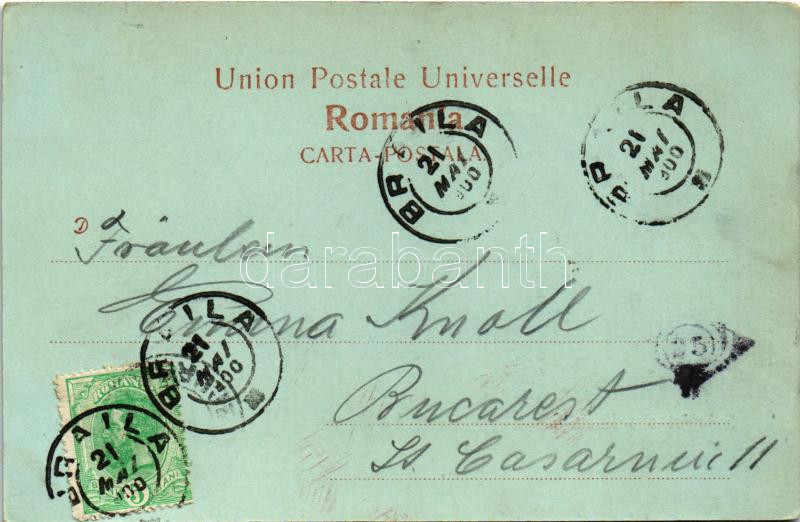 Union Postale Universelle
Romania
CARTA-POSTALA
BRAILA
21
MAI
900
BRAILA
21
MAI
900
D
Fräulein
darabanth
Emma Knoll
BRAILA
21
MAI
900
25
Bucarest
ROMANIA
BRAILA
21
MAI
900
5
BANI
St. Casarmii 11